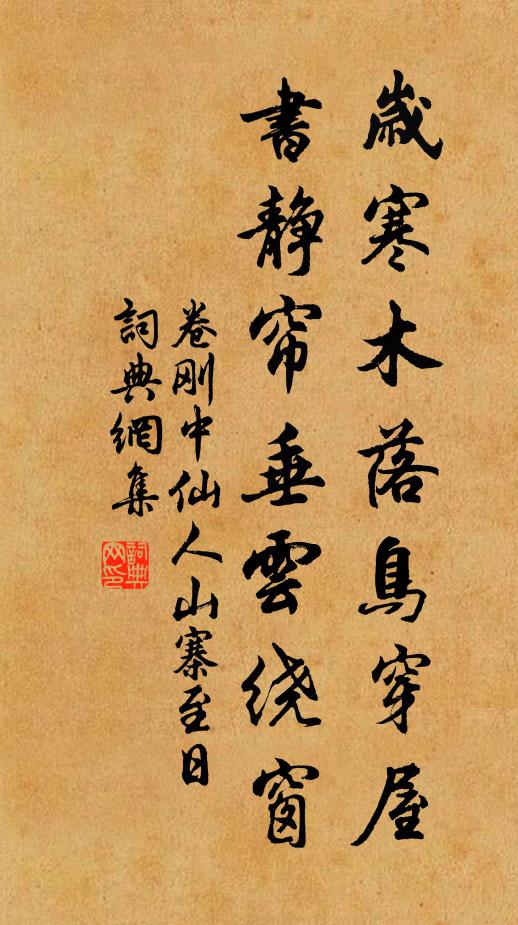 歲寒木落鳥穿屋
書靜帘垂雲绕窗
卷刚中仙人山寨至日
詞典網集
詞典
网印